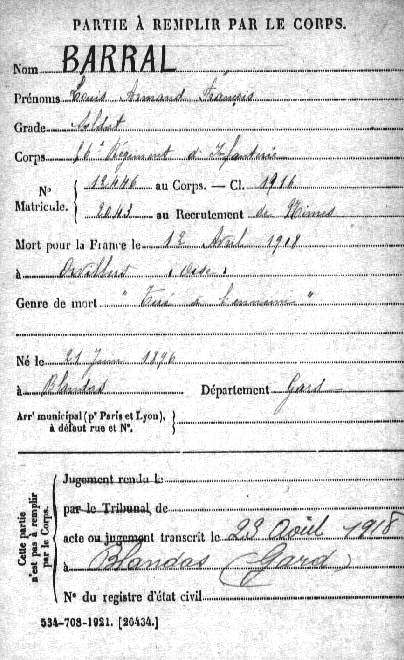 PARTIE À REMPLIR PAR LE CORPS.
Nom BARRAL
Prénoms Louis Armand François
Grade Soldat
Corps Régiment d'Infanterie
Nº Matricule. 12446 au Corps. — Cl. 1916
2043 au Recrutement de Nimes
Mort pour la France le 12 Avril 1918
à Orvillers (Oise)
Genre de mort "Tué à l'ennemi"
Né le 21 Juin 1896
à Blandas Département Gard
Arrt municipal (pr Paris et Lyon),
à défaut rue et Nº.
Cette partie
n'est pas à remplir
par le Corps.
Jugement rendu le
par le Tribunal de
acte ou jugement transcrit le 23 Août 1918
à Blandas (Gard)
Nº du registre d'état civil
534-708-1921. [26434.]